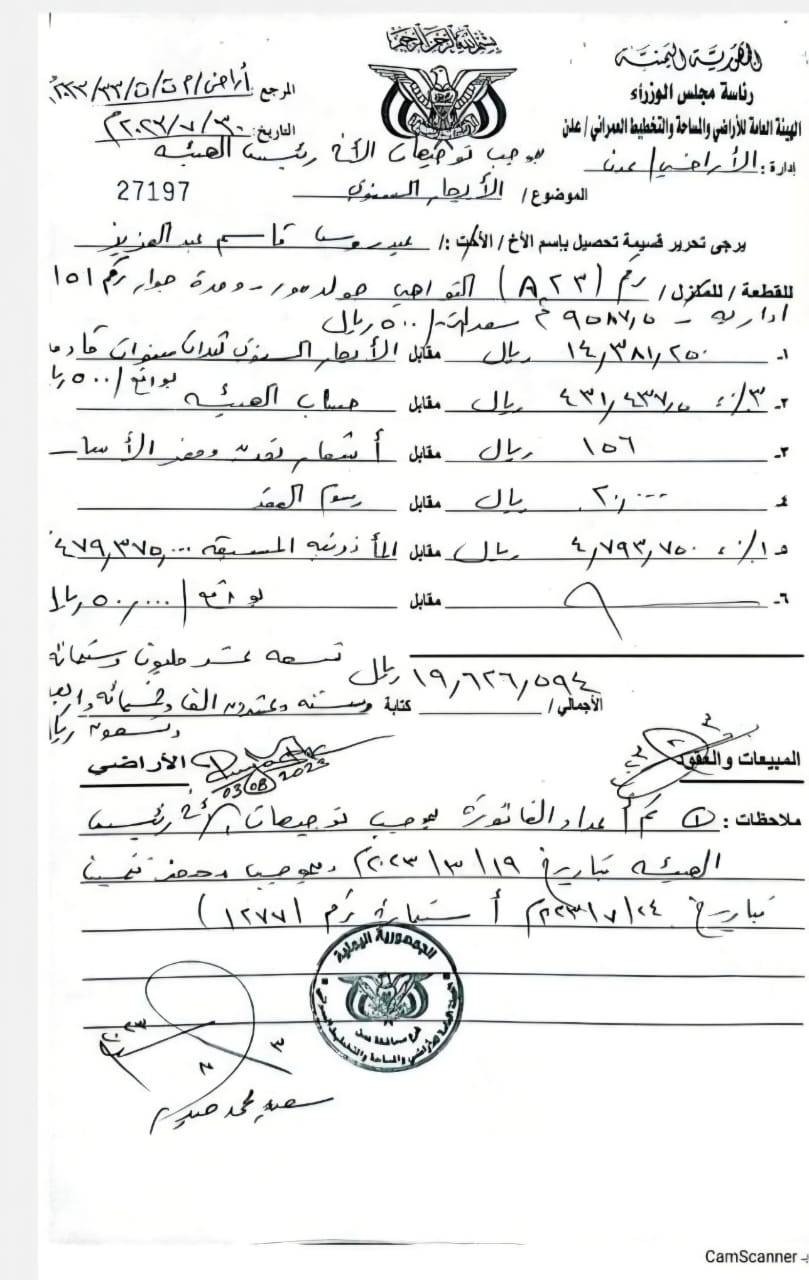 بسم الله الرحمن الرحيم
الجمهورية اليمنية
رئاسة مجلس الوزراء
الهيئة العامة للأراضي والمساحة والتخطيط العمراني / عدن
إدارة: الأراضي / عدن
المرجع: أراضي/
التاريخ: ٣٠/٧/٢٠٢٣م
بموجب توجيهات الأخ رئيس الهيئه
الموضوع / الأيجار السنوي
27197
يرجى تحرير قسيمة تحصيل باسم الأخ / الأخت: / عيدروس قاسم عبد العزيز
للقطعة / للمنزل / رقم (A٢٣) التواهي جولدمور - وحدة جوار رقم ١٥١
ادارية - ٩٥٨٧,٥ م ٥٠٠ ريال
١- ١٤,٣٨١,٢٥٠ ريال مقابل الأيجار السنوي ثلاث سنوات قادمة
بواقع /٥٠٠ ريال
٢- ٣٪ ٤٣١,٤٣٧,٥ ريال مقابل حساب الهيئه
٣- ١٥٦ ريال مقابل
٤- ٢٠,٠٠٠ ريال مقابل رسوم العقد
٥- ١٪ ٤,٧٩٣,٧٥٠ ريال مقابل المسبقه ٤٧٩,٣٧٥,٠٠٠
٦- مقابل بواقع / ٥٠,٠٠٠ ريال
الأجمالي / ١٩,٦٢٦,٥٩٤ ريال كتابة تسعه عشر مليون وستمائه
وسته وعشرون الفا وخمسمائه واربعه
وتسعون ريال
المبيعات والعقود
الأراضي
03/08/2023
ملاحظات: ① تم أعداد الفاتورة بموجب توجيهات الأخ رئيس
الهيئه بتاريخ ١٩/٣/٢٠٢٣م وبموجب محضر تثمين
بتاريخ ٢٤/٧/٢٠٢٣م أستمارة رقم (١٢٧٧)
الجمهورية اليمنية
CamScanner